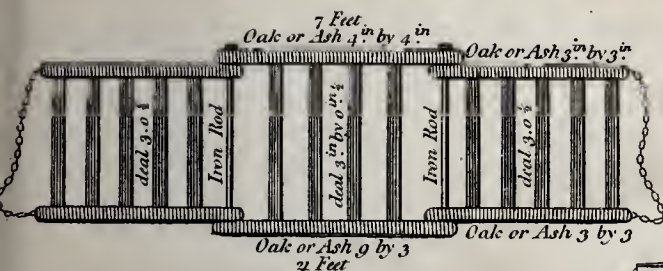 7 Feet
Oak or Ash 4.in by 4.in
Oak or Ash 3.in by 3.in
deal 3.0½
Iron Rod
deal 3.in by 0.in½
Iron Rod
deal 3.0½
Oak or Ash 9 by 3
Oak or Ash 3 by 3
Feet